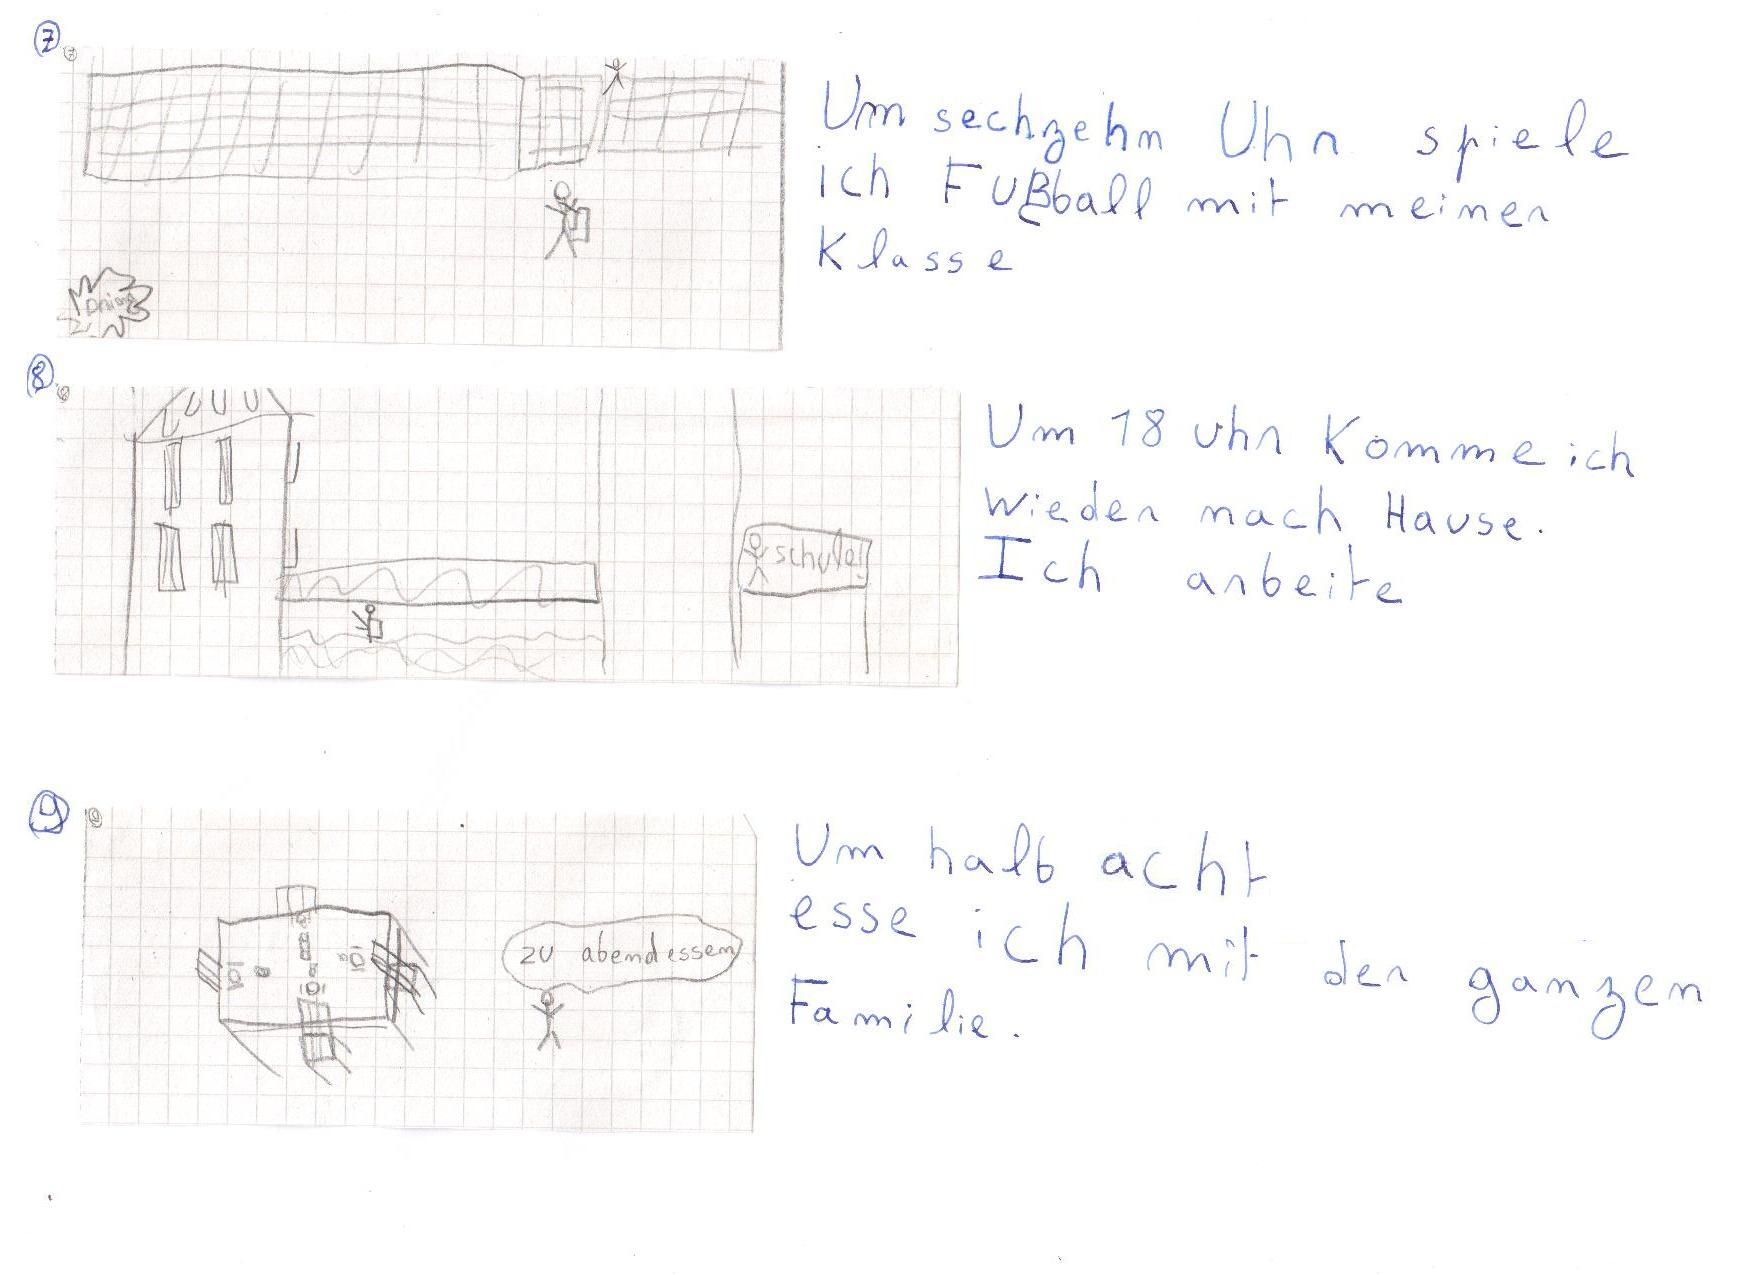 7
Um sechzehn Uhr spiele
ich Fußball mit meiner
Klasse
8
Um 18 uhr Komme ich
wieder nach Hause.
Ich arbeite
schule!
9
Um halb acht
esse ich mit der ganzen
Familie.
zu abendessen